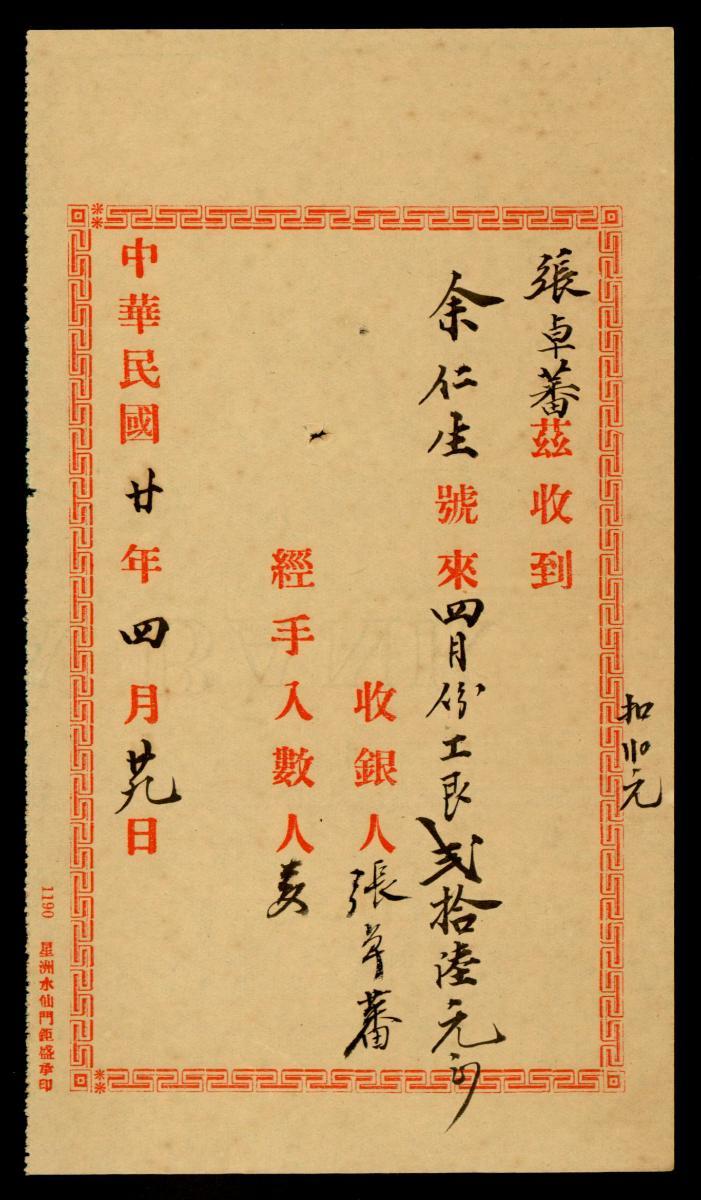 張卓蕃茲收到
余仁生號來四月份工艮弍拾陸元
收銀人張卓蕃
經手入數人
中華民國廿年四月廿九日
扣元
1190 星洲水仙門鉅盛承印